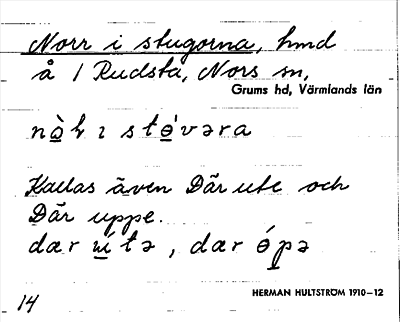 Norr i stugorna, hmd
å 1 Rudsta, Nors sn,
Grums hd, Värmlands län
nɔ̀r ɩ stǿvəra
Kallas även Där ute och
Där uppe.
dær ẃtə, dær ǿpə
14 HERMAN HULTSTRÖM 1910–12